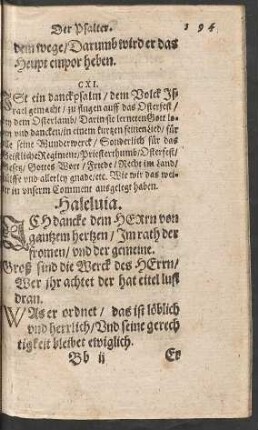 Der Psalter. 194
dem wege/ Darumb wird er das
Heupt empor heben.
CXI.
JSt ein danckpsalm/ dem Volck Jß-
rael gemacht/ zu singen auff das Osterfest/
dem Osterlamb/ Darin sie lerneten Gott lo-
vnd dancken/ in einem kurtzen feinen Lied/ für
alle seine Wunderwerck/ Sonderlich für das
Geistliche Regiment/ Priesterthumb/ Osterfest/
Gesetz/ Gottes Wort/ Friede/ Recht im Land/
vnd allerley gnade/etc. Wie wir das wei-
ter in vnserm Comment ausgelegt haben.
Haleluia.
JCH dancke dem HErrn von
gantzem hertzen/ Im rath der
fromen/ vnd der gemeine.
Groß sind die Werck des HErrn/
Wer jhr achtet der hat eitel lust
dran.
WAs er ordnet/ das ist löblich
vnd herrlich/ Vnd seine gerech
tigkeit bleibet ewiglich.
Bb ij Er